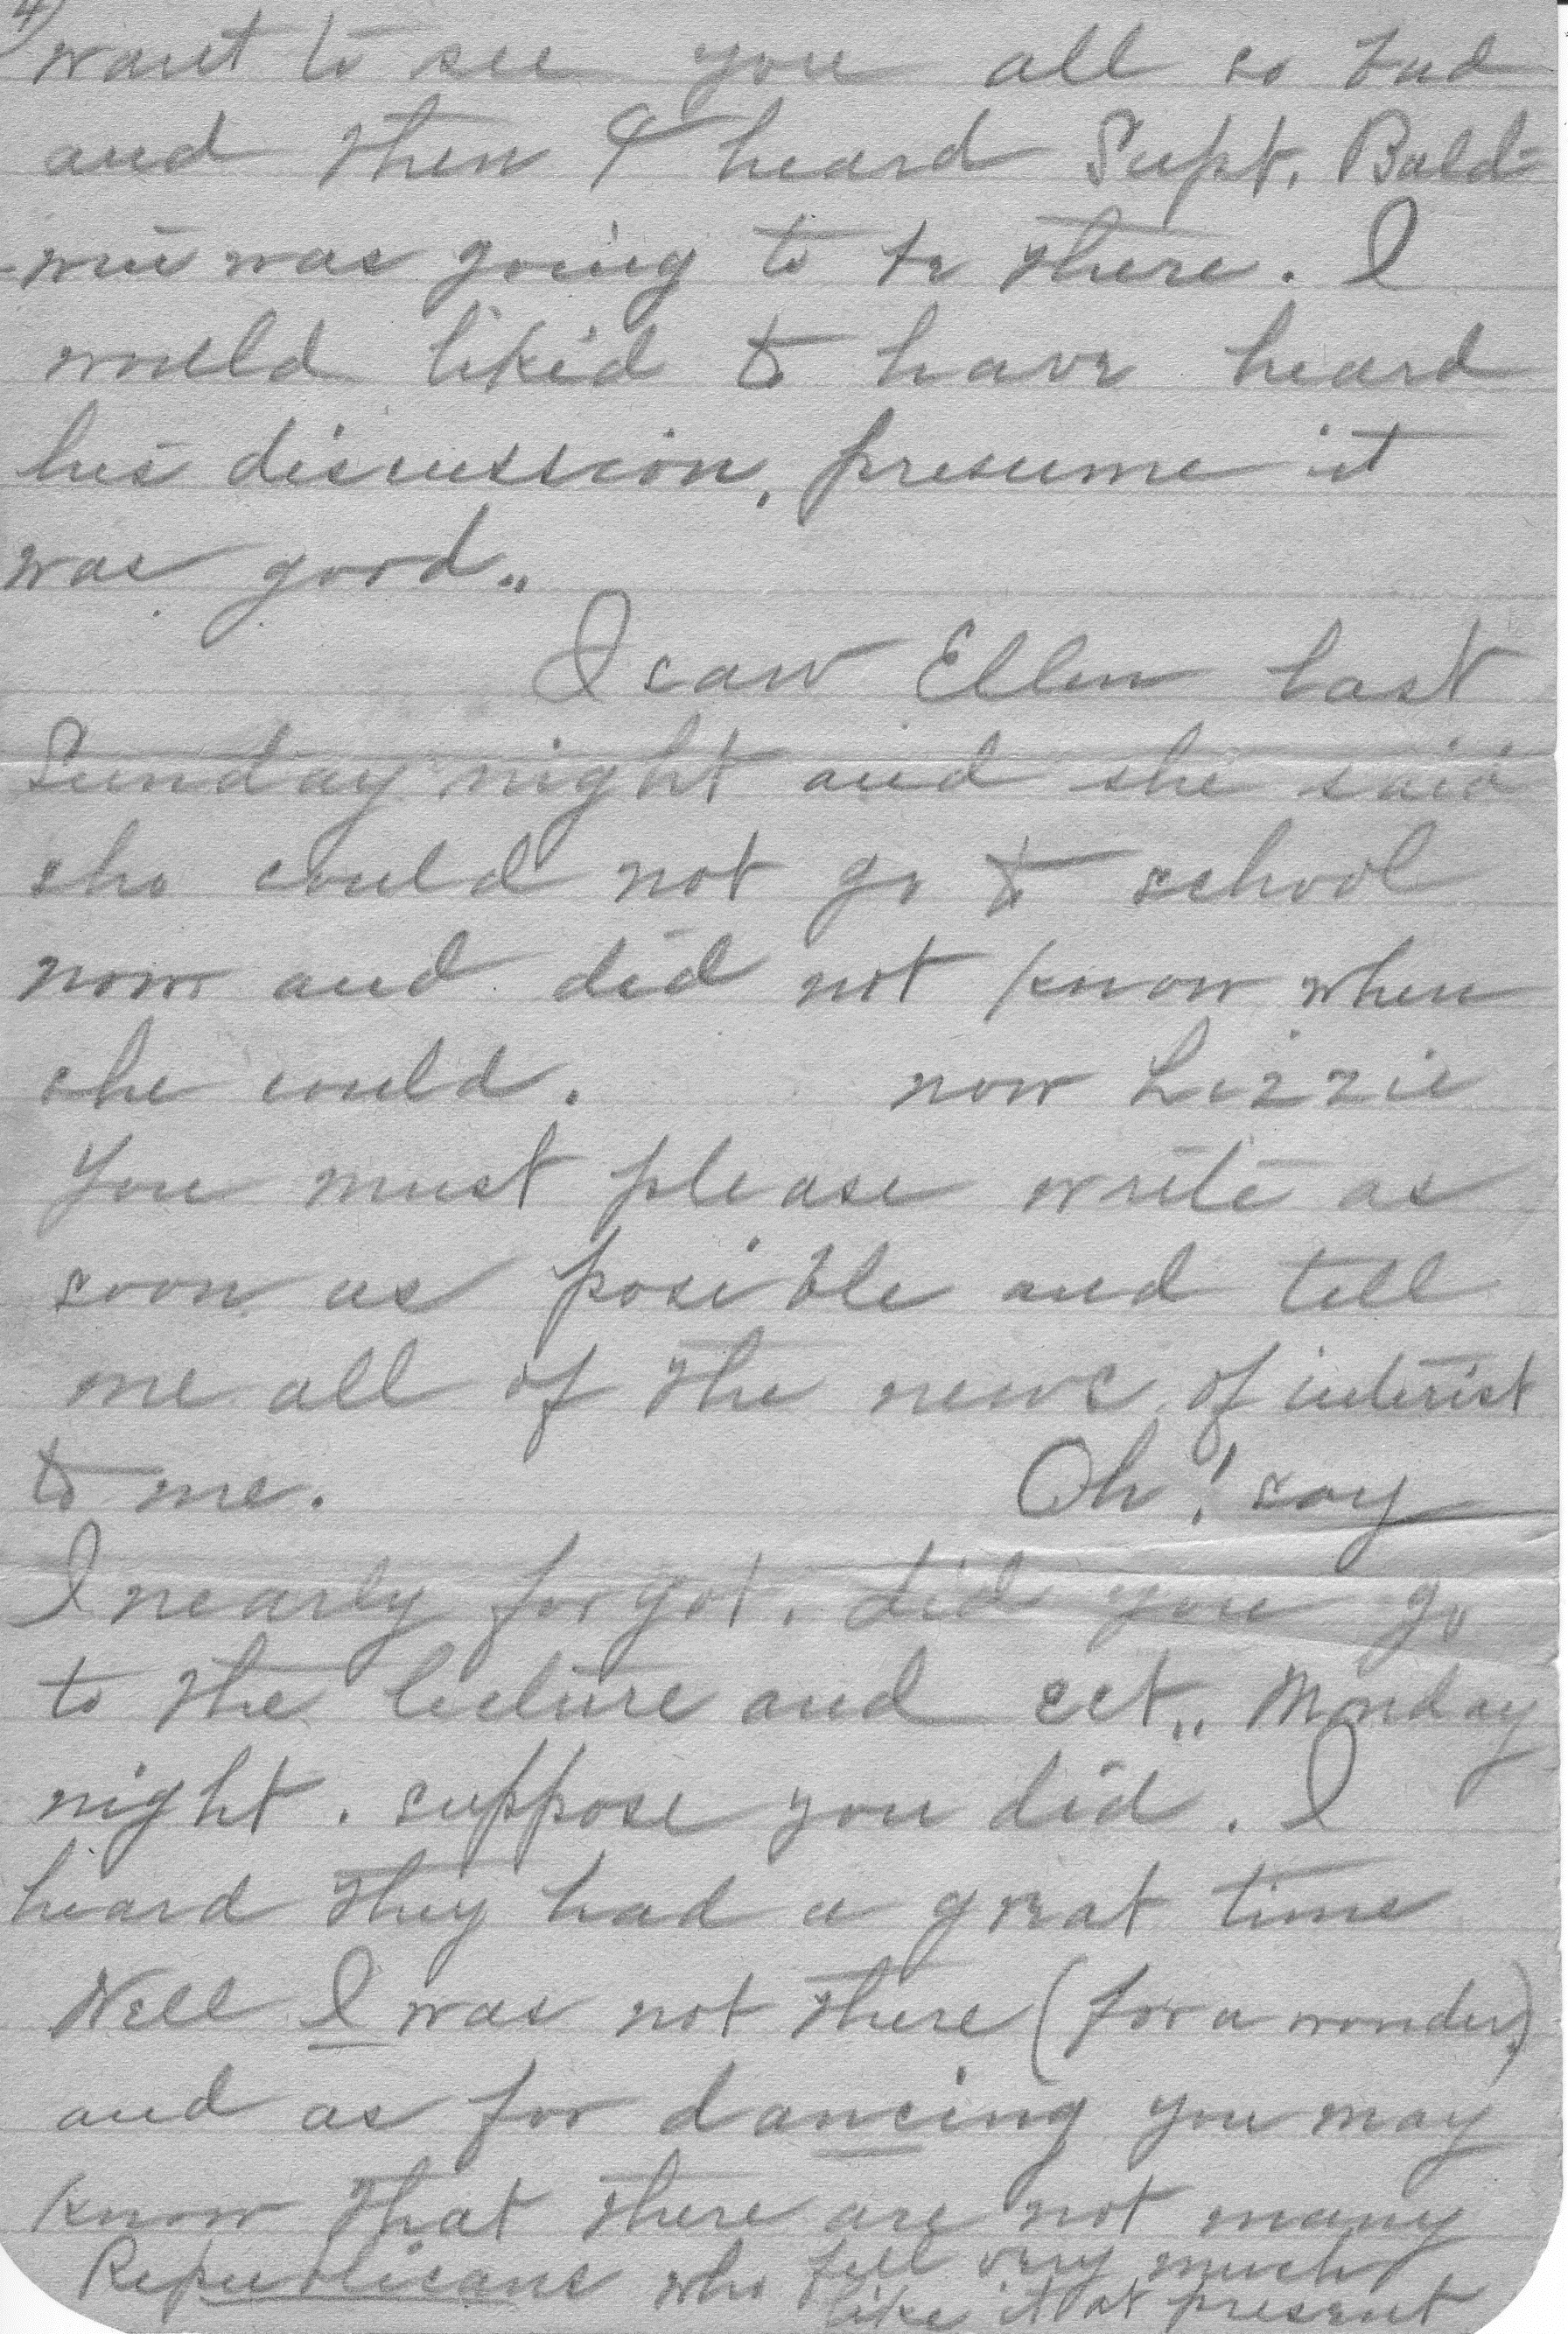 4)
want to see you all so bad
and then I heard Supt. Bald-
-win was going to be there. I
would liked to have heard
his discussion, presume it
was good..
I saw Ellen last
Sunday night and she said
she could not go to school
now and did not know when
she could. now Lizzie
You must please write as
soon as posible and tell
me all of the news of interest
to me. Oh! say
I nearly forgot. did you go
to the lecture and ect.. Monday
night. suppose you did. I
heard they had a great time
Well I was not there (for a wonder.)
and as for dancing you may
know that there are not many
Republicans who feel very much
like it at present